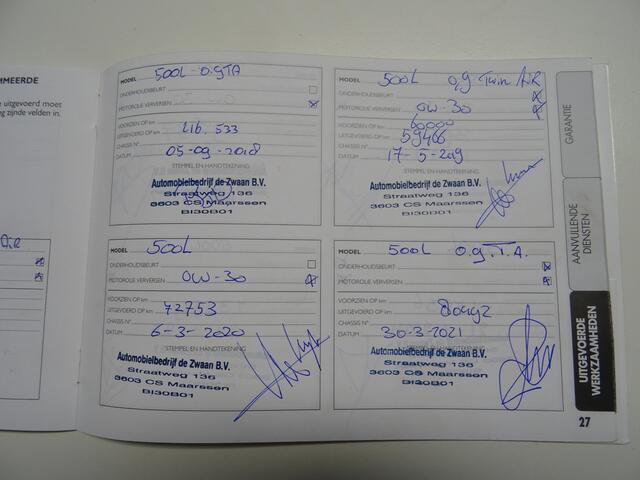 MMEERDE
e uitgevoerd moet
ng zijnde velden in.
AiR
MODEL 500L - 0.9TA
ONDERHOUDSBEURT
MOTOROLIE VERVERSEN
VOORZIEN OP km
UITGEVOERD OP km 533
CHASSIS N°
DATUM 05-09-2018
STEMPEL EN HANDTEKENING
Automobielbedrijf de Zwaan B.V.
Straatweg 136
3603 CS Maarssen
BI30B01
MODEL 500L 0,9 Twin AiR
ONDERHOUDSBEURT
MOTOROLIE VERVERSEN 0W-30
VOORZIEN OP km 60000
UITGEVOERD OP km 59466
CHASSIS N°
DATUM 17-5-2019
STEMPEL EN HANDTEKENING
Automobielbedrijf de Zwaan B.V.
Straatweg 136
3603 CS Maarssen
BI30B01
MODEL 500L
ONDERHOUDSBEURT
MOTOROLIE VERVERSEN 0W-30
VOORZIEN OP km
UITGEVOERD OP km 72753
CHASSIS N°
DATUM 6-3-2020
STEMPEL EN HANDTEKENING
Automobielbedrijf de Zwaan B.V.
Straatweg 136
3603 CS Maarssen
BI30B01
MODEL 500L 0.9 T.A.
ONDERHOUDSBEURT
MOTOROLIE VERVERSEN
VOORZIEN OP km
UITGEVOERD OP km
CHASSIS N°
DATUM 30-3-2021
STEMPEL EN HANDTEKENING
Automobielbedrijf de Zwaan B.V.
Straatweg 136
3603 CS Maarssen
BI30B01
GARANTIE
AANVULLENDE
DIENSTEN
UITGEVOERDE
WERKZAAMHEDEN
27